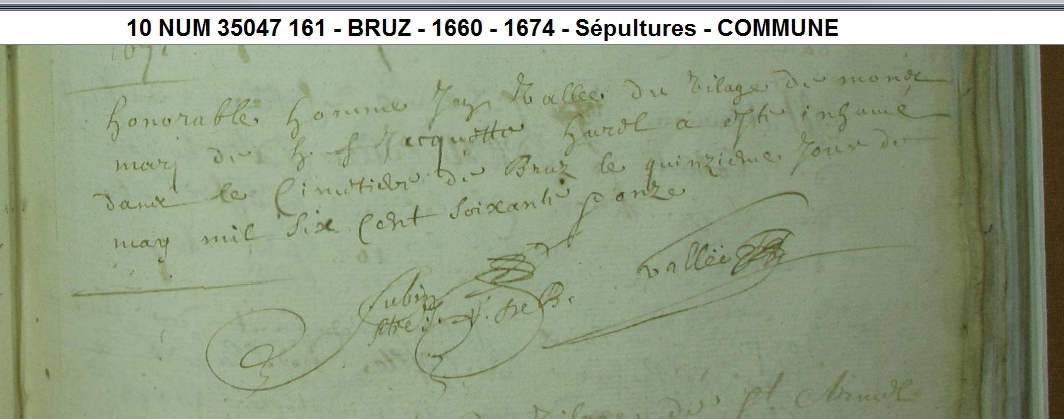 10 NUM 35047 161 - BRUZ - 1660 - 1674 - Sépultures - COMMUNE
1671
honorable homme Jan Vallee du vilage de
mary de h f Jacquette hurel a esté inhumé
dans le Cimetiere de Bruz le quinzieme Jour de
may mil six cent soixante & onze
vallée
vilage de